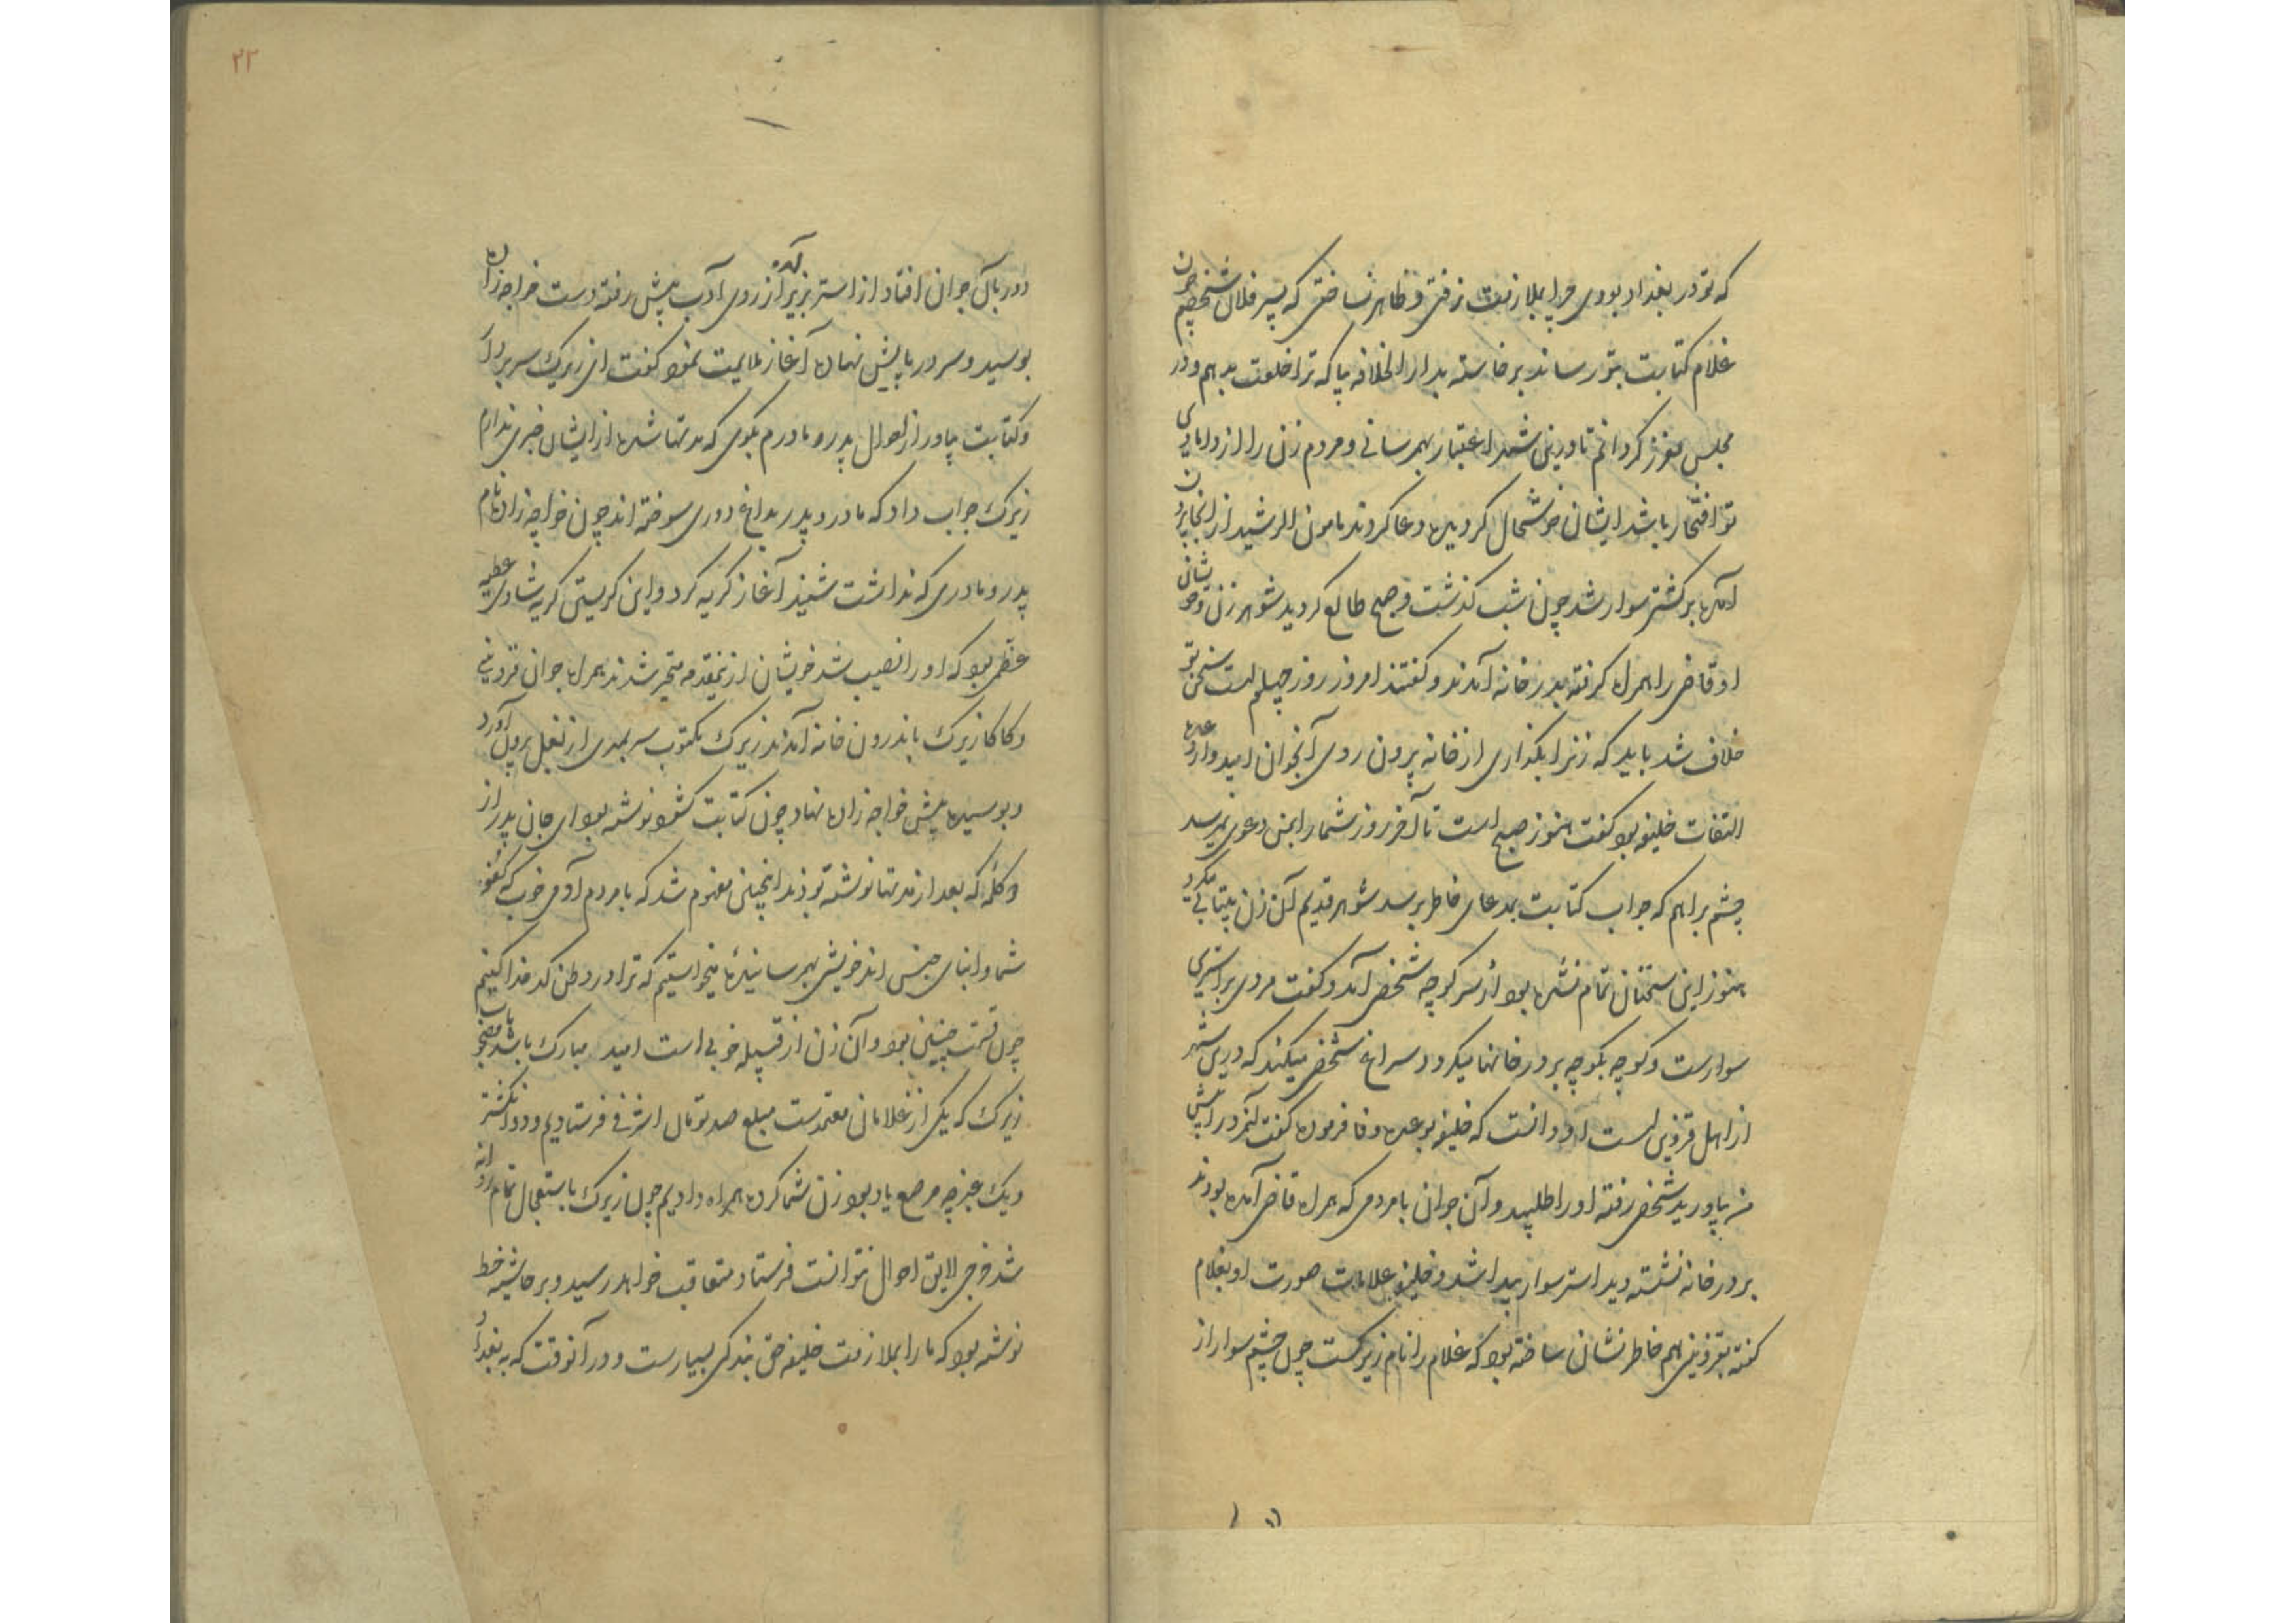 که تو در بغداد بودی چرا بملازمت نرفتی و ظاهر نساختی که پسر فلان شخصم چون
غلام کتابت بتو رساند برخاسته بدار الخلافه بیا که ترا خلعت بدهم و در
مجلس معزز گردانم تا درین شهر اعتبار بهم رسانی و مردم زن را از دامادی
تو افتخار باشد ایشان خوشحال گردیده دعا کردند مامون الرشید از آنجا برون
آمده بر کشتی سوار شد چون شب گذشت و صبح طالع گردید شوهر زن و خویشان
او قاضی را همراه گرفته بدر خانه آمدند و گفتند امروز روز چهلم است سخن تو
خلاف شد باید که زنرا بگذاری از خانه برون روی آنجوان امیدوار وعده
التفات خلیفه بود گفت هنوز صبح است تا آخر روز شما را بمن دعوی نمیرسد
چشم براهم که جواب کتابت بمدعای خاطر برسد شوهر قدیم آن زن بیتابی میکرد
هنوز این سخنان تمام نشده بود از سر کوچه شخصی آمد و گفت مردی بر استری
سوارست و کوچه بکوچه بر در خانها میگردد سراغ شخصی میکند که درین شهر
از اهل قزوین است او دانست که خلیفه بوعده وفا فرموده گفت آنمرد را پیش
من بیاورید شخصی رفته او را طلبید و آن جوان با مردمی که همراه قاضی آمده بودند
بر در خانه نشسته دید استر سوار پیدا شد و خلیفه علامات صورت او بغلام
گفته بقزوینی هم خاطر نشان ساخته بود که غلام را نام زیرکست چون چشم سوار از
دور بآن جوان افتاد از استر بزیر آمده از روی آدب پیش رفته دست خواجه زاده
بوسید و سر در پایش نهاده آغاز ملایمت نمود گفت ای زیرک سر بردار
و کتابت بیاور از احوال پدر و مادرم بگوی که مدتها شده از ایشان خبری ندارم
زیرک جواب داد که مادر و پدر بداغ دوری سوخته اند چون خواجه زاده نام
پدر و مادری که نداشت شنید آغاز گریه کرد و این گریستن گریه شادی عطیه
عظمی بود که او را نصیب شد خویشان ازینمقدمه متحیر شدند همراه جوان قزوینی
و کاکا زیرک باندرون خانه آمدند زیرک مکتوب سر بمهری از بغل برون آورد
و بوسیده پیش خواجه زاده نهاد چون کتابت گشود نوشته بود ای جان پدر از
گله که بعد از مدتها نوشته بودند اینچنین مفهوم شد که با مردم آدمی خوب که کفو
شما و ابنای جنس اند خویشی بهم رسانیده میخواستیم که ترا در وطن کدخدا کنیم
چون قسمت چنین بود و آن زن از قبیله خوبی است امید مبارک باشد مصحوب
زیرک که یکی از غلامان معتمدست مبلغ صد تومان اشرفی فرستادیم و دو انگشتر
و یک عنبرچه مرصع یاد بود زن شما کرده همراه دادیم چون زیرک باستعجال تمام روانه
شد خرجی لایق احوال نتوانست فرستاد متعاقب خواهد رسید و بر حاشیه خط
نوشته بود که ما را بملازمت خلیفه حق بندگی بسیارست و در آنوقت که به بغداد
۲۲